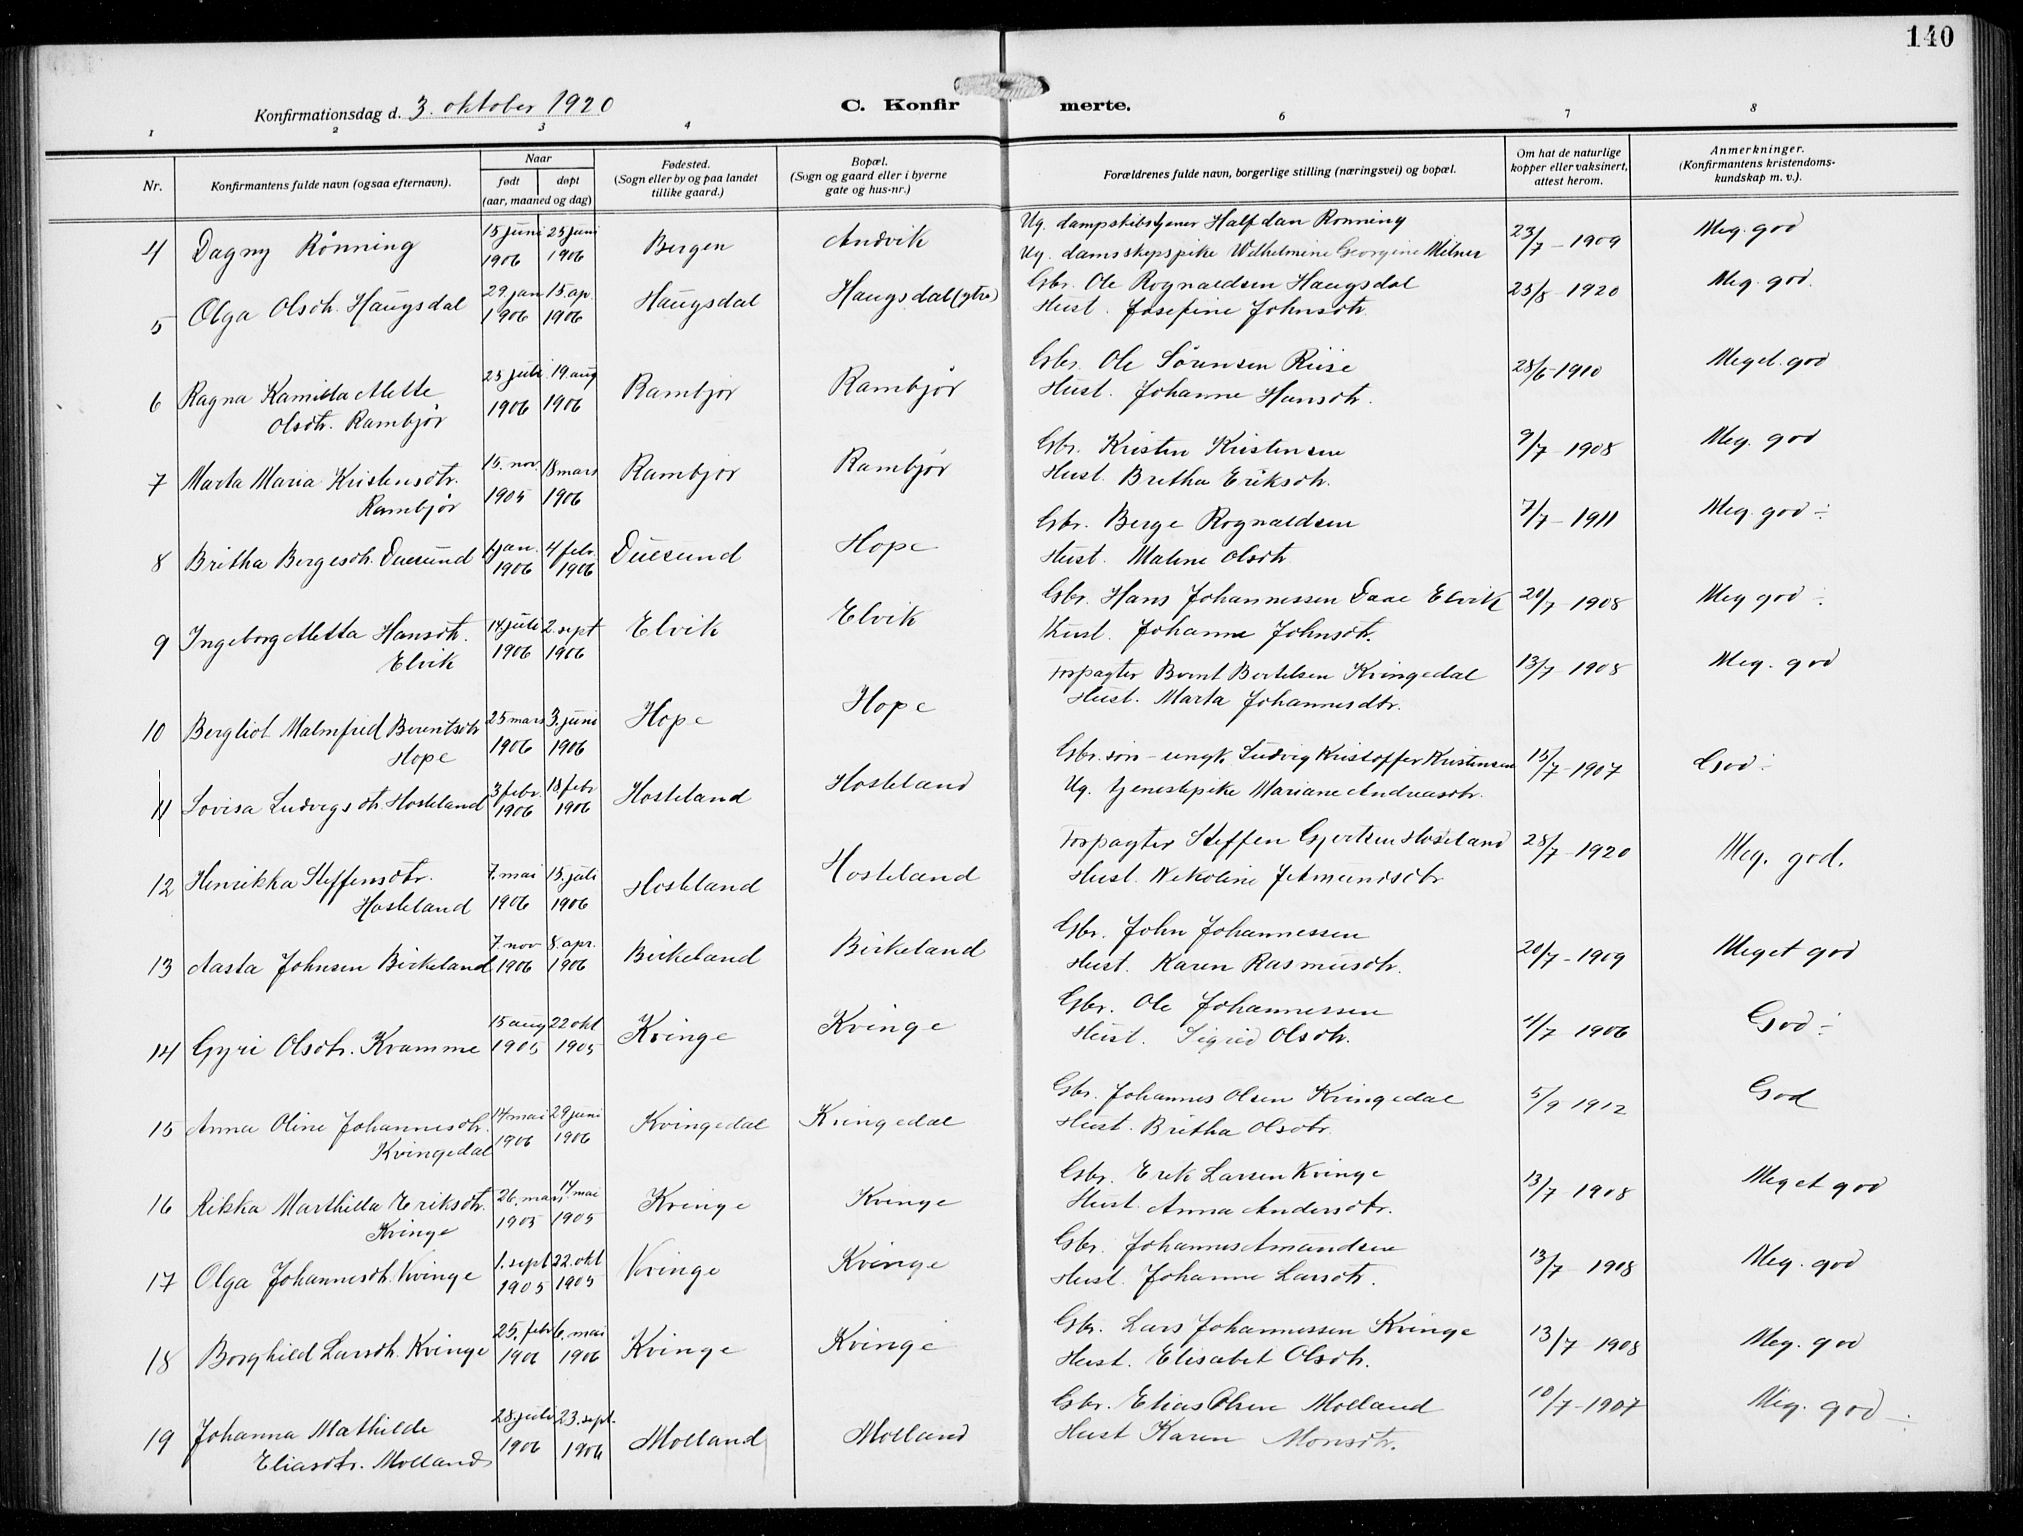 140
Konfirmationsdag d. 3. oktober 1920
C. Konfirmerte.
1 2 3 4 6 7 8
Nr.
Konfirmantens fulde navn (ogsaa efternavn).
Naar
født døpt
(aar, maaned og dag)
Fødested.
(Sogn eller by og paa landet
tillike gaard.)
Bopæl.
(Sogn og gaard eller i byerne
gate og hus-nr.)
Forældrenes fulde navn, borgerlige stilling (næringsvei) og bopæl.
Om hat de naturlige
kopper eller vaksinert,
attest herom.
Anmerkninger.
(Konfirmantens kristendoms-
kundskap m. v.).
4 Dagny Rönning 15 juni 1906 25 juni 1906 Bergen Andvik
Ug. dampskibstjener Halfdan Rönning 23/7 - 1909 Meg. god
Ug. Wilhelmine Georgine Milner
5 Olga Olsdtr. Haugsdal 29. jan 1906 15. ap. 1906 Haugsdal Haugsdal (ytre)
Gbr. Ole Rognaldsen Haugsdal 25/8 - 1920 Meg. god.
Hust. Josefine Johnsdtr.
6 Ragna Kamilla Mette
Olsdtr. Rambjör 25 juli 1906 19. aug 1906 Rambjor Rambjör
Gbr. Ole Sörensen Riise 28/6 - 1910 Meget. god
Hust. Johanne Hansdtr.
7 Marta Maria Kristensdtr.
Rambjör 15. nov. 1905 18 mars 1906 Rambjor Rambjör
Gbr. Kristen Kristensen 9/7 - 1908 Meg. god
Hust. Britha Eriksdtr.
8 Britha Bergesdtr. Duesund jan. 1906 4 febr. 1906 Duesund Hope
Gbr. Berge Rognaldsen 7/7 - 1911 Meg. god ÷
Hust. Malene Olsdtr.
9 Ingeborg Metta Hansdtr.
Elvik 14 juli 1906 2. sept 1906 Elvik Elvik
Gbr. Hans Johannessen Daae Elvik 20/7 - 1908 Meg god ÷
Hust. Johanne Johnsdtr.
10 Bergliot Malmfrid Berentsdtr
Hope 25 mars 1906 3. juni 1906 Hope Hope
Forpagter Bernt Bertelsen Kvingedal 13/7 - 1908 Meg. god
Hust. Marta Johannesdtr.
11 Lovisa Ludvigsdtr. Hosteland 3 febr. 1906 18 febr 1906 Hosteland Hosteland
Gbr. sön - ungk. Ludvig Kristoffer Kristensen 15/7 - 1907 God ÷
Ug. tjenestepike Mariane Andreasdtr.
12 Henrikka Steffensdtr.
Hosteland 7. mai 1906 15. juli 1906 Hosteland Hosteland
Forpagter Steffen Gjertsen Hosteland 28/7 - 1920 Meg. god.
Hust. Nikoline
13 Aasta Johnsen Birkeland 7. nov 1906 8. apr. 1906 Birkeland Birkeland
Gbr. John Johannessen 20/7 - 1909 Meget god
Hust. Karen Rasmusdtr.
14 Gyri Olsdtr. Kvamme 15 aug 1905 22 okt 1905 Kvinge Kvinge
Gbr. Ole Johannessen /7 - 1906 God ÷
Hust. Sigrid Olsdtr.
15 Anna Oline Johannesdtr.
Kvingedal 14 mai 1906 29 juni 1906 Kvingedal Kvingedal
Gbr. Johannes Olsen Kvingedal 5/9 1912 God
Hust. Britha Olsdtr.
16 Rikka Marthilda Eriksdtr.
Kvinge 26. mars 1905 14 mai 1905 Kvinge Kvinge
Gbr. Erik Larsen Kvinge 13/7 1908 Meget god
Hust. Anna Andersdtr.
17 Olga Johannesdtr. Kvinge 1. sept 1905 22. okt 1905 Kvinge Kvinge
Gbr. Johannes Amundsen 13/7 - 1908 Meg. god
Hust. Johanne Larsdtr.
18 Borghild Larsdtr. Kvinge 25. febr 1906 6. mai 1906 Kvinge Kvinge
Gbr. Lars Johannessen Kvinge 13/7 - 1908 Meg. god
Hust. Elisabet Olsdtr.
19 Johanna Mathilde
Eliasdtr. Molland 28. juli 1906 23. sept. 1906 Molland Molland
Gbr. Elias Olsen Molland 10/7 - 1907 Meg. god ÷
Hust Karen Monsdtr.